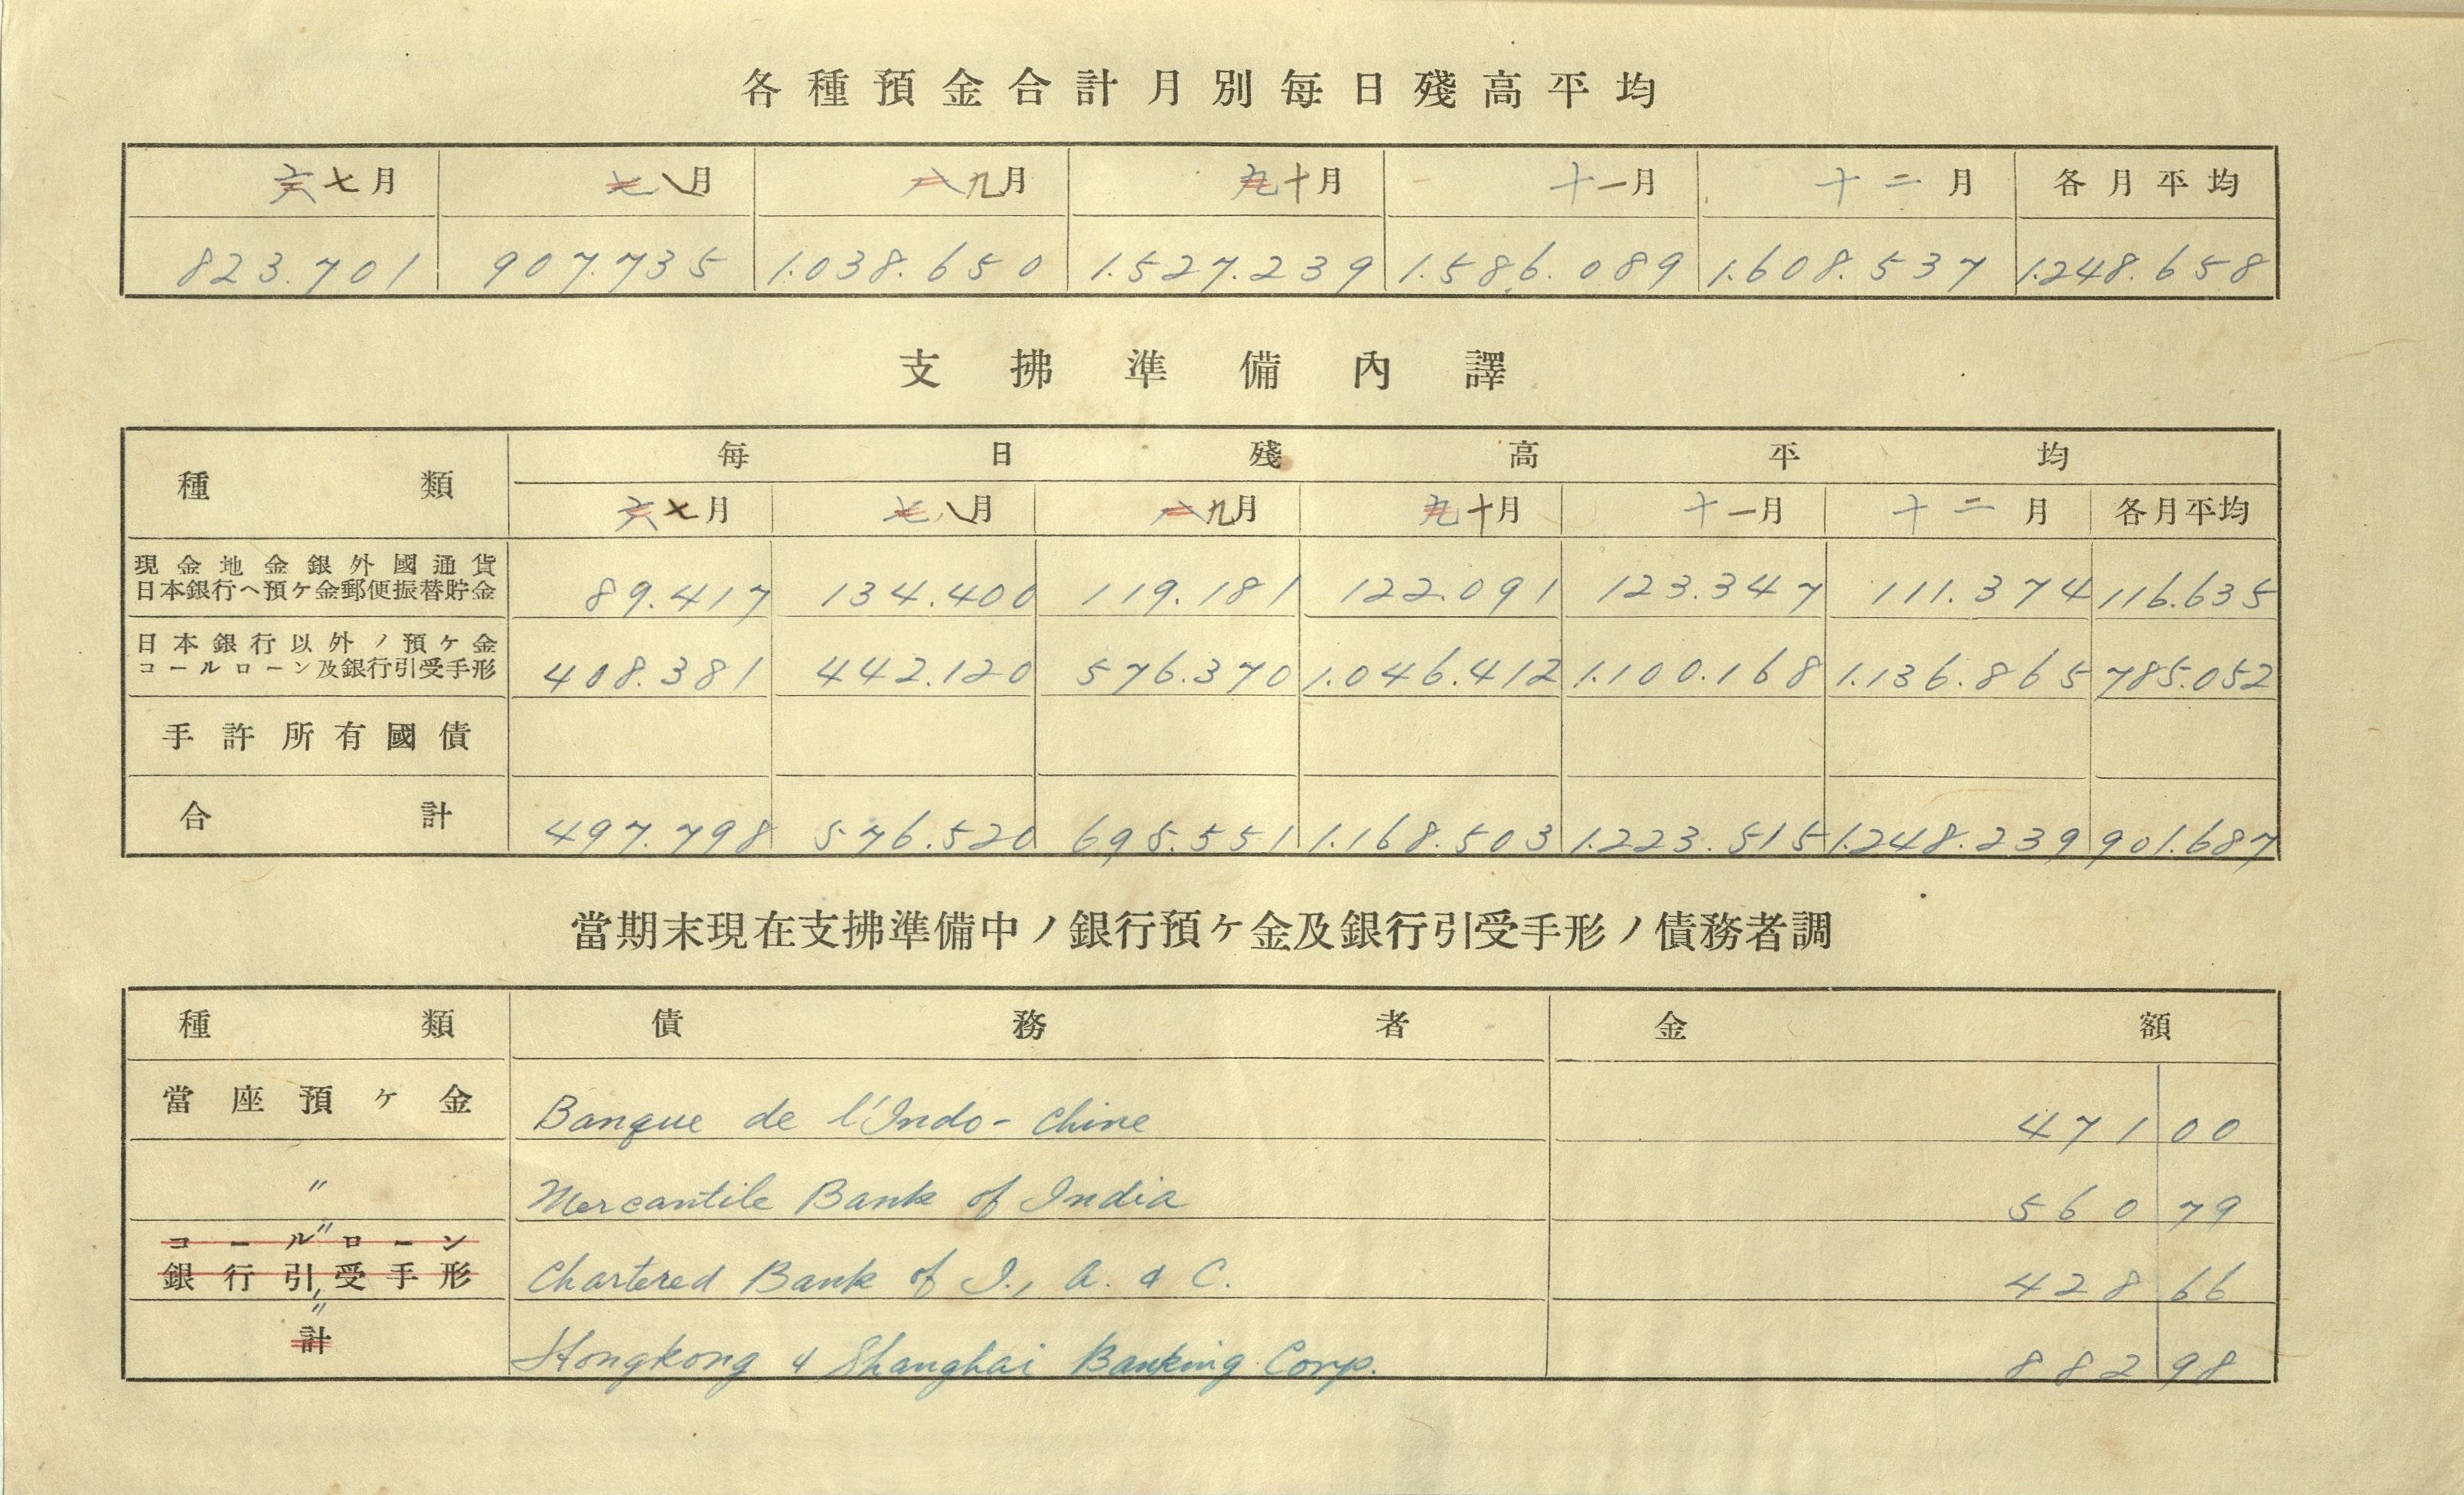 各種預金合計月別每日殘高平均
六七月 七八月 八九月 九十月 十一月 十二月 各月平均
823.701 907.735 1.038.650 1.527.239 1.586.089 1.608.537 1.248.658
支拂準備內譯
種類 每日殘高平均
六七月 七八月 八九月 九十月 十一月 十二月 各月平均
現金地金銀外國通貨
日本銀行ヘ預ケ金郵便振替貯金 89.417 134.400 119.181 122.091 123.347 111.374 116.635
日本銀行以外ノ預ケ金
コールローン及銀行引受手形 408.381 442.120 576.370 1.046.412 1.100.168 1.136.865 785.052
手許所有國債
合計 497.798 576.520 695.551 1.168.503 1.223.515 1.248.239 901.687
當期末現在支拂準備中ノ銀行預ケ金及銀行引受手形ノ債務者調
種類 債務者 金額
當座預ケ金 Banque de l'Indo-Chine 471 00
〃 Mercantile Bank of India 560 79
〃
コールローン
銀行引受手形 Chartered Bank of I., A. & C. 428 66
〃
計 Hongkong & Shanghai Banking Corp. 882 98